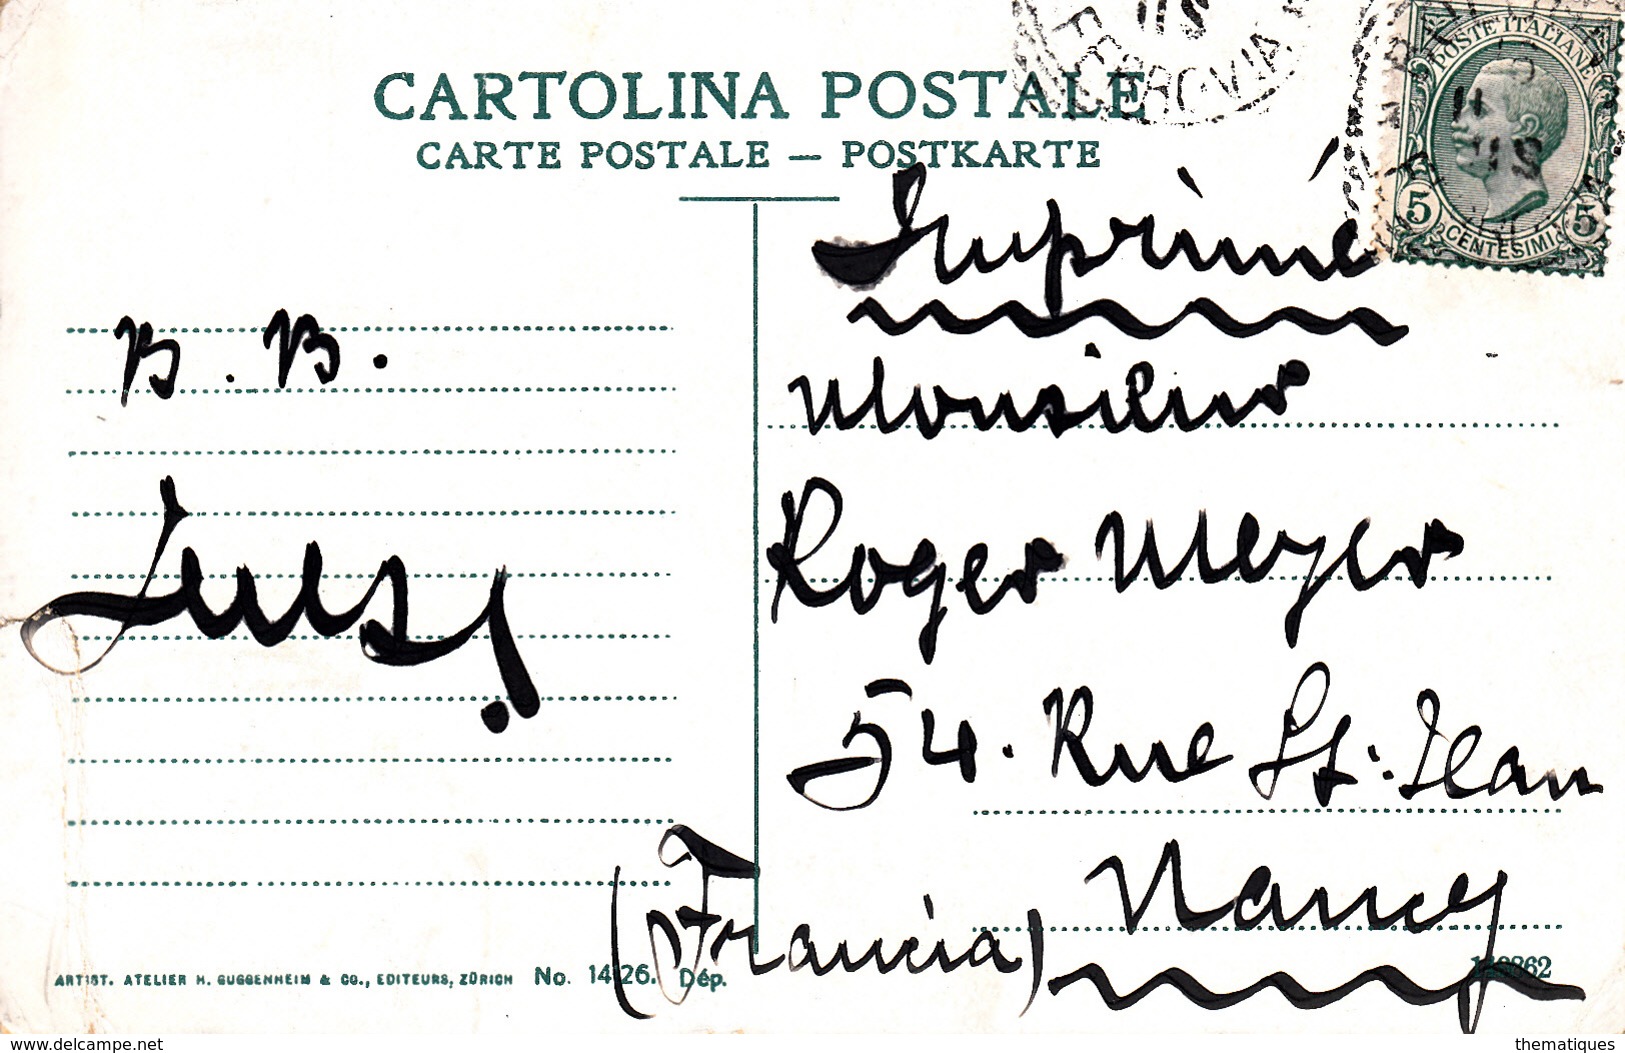 CARTOLINA POSTALE
CARTE POSTALE — POSTKARTE
FERROVIA
POSTE ITALIANE
5 CENTESIMI 5
Imprimé
B. B.
Monsieur
Roger Meyer
54. Rue St. Jean
Nancy
(Francia)
ARTIST. ATELIER H. GUGGENHEIM & CO., EDITEURS, ZÜRICH No. 14126. Dép.
www.delcampe.net
thematiques